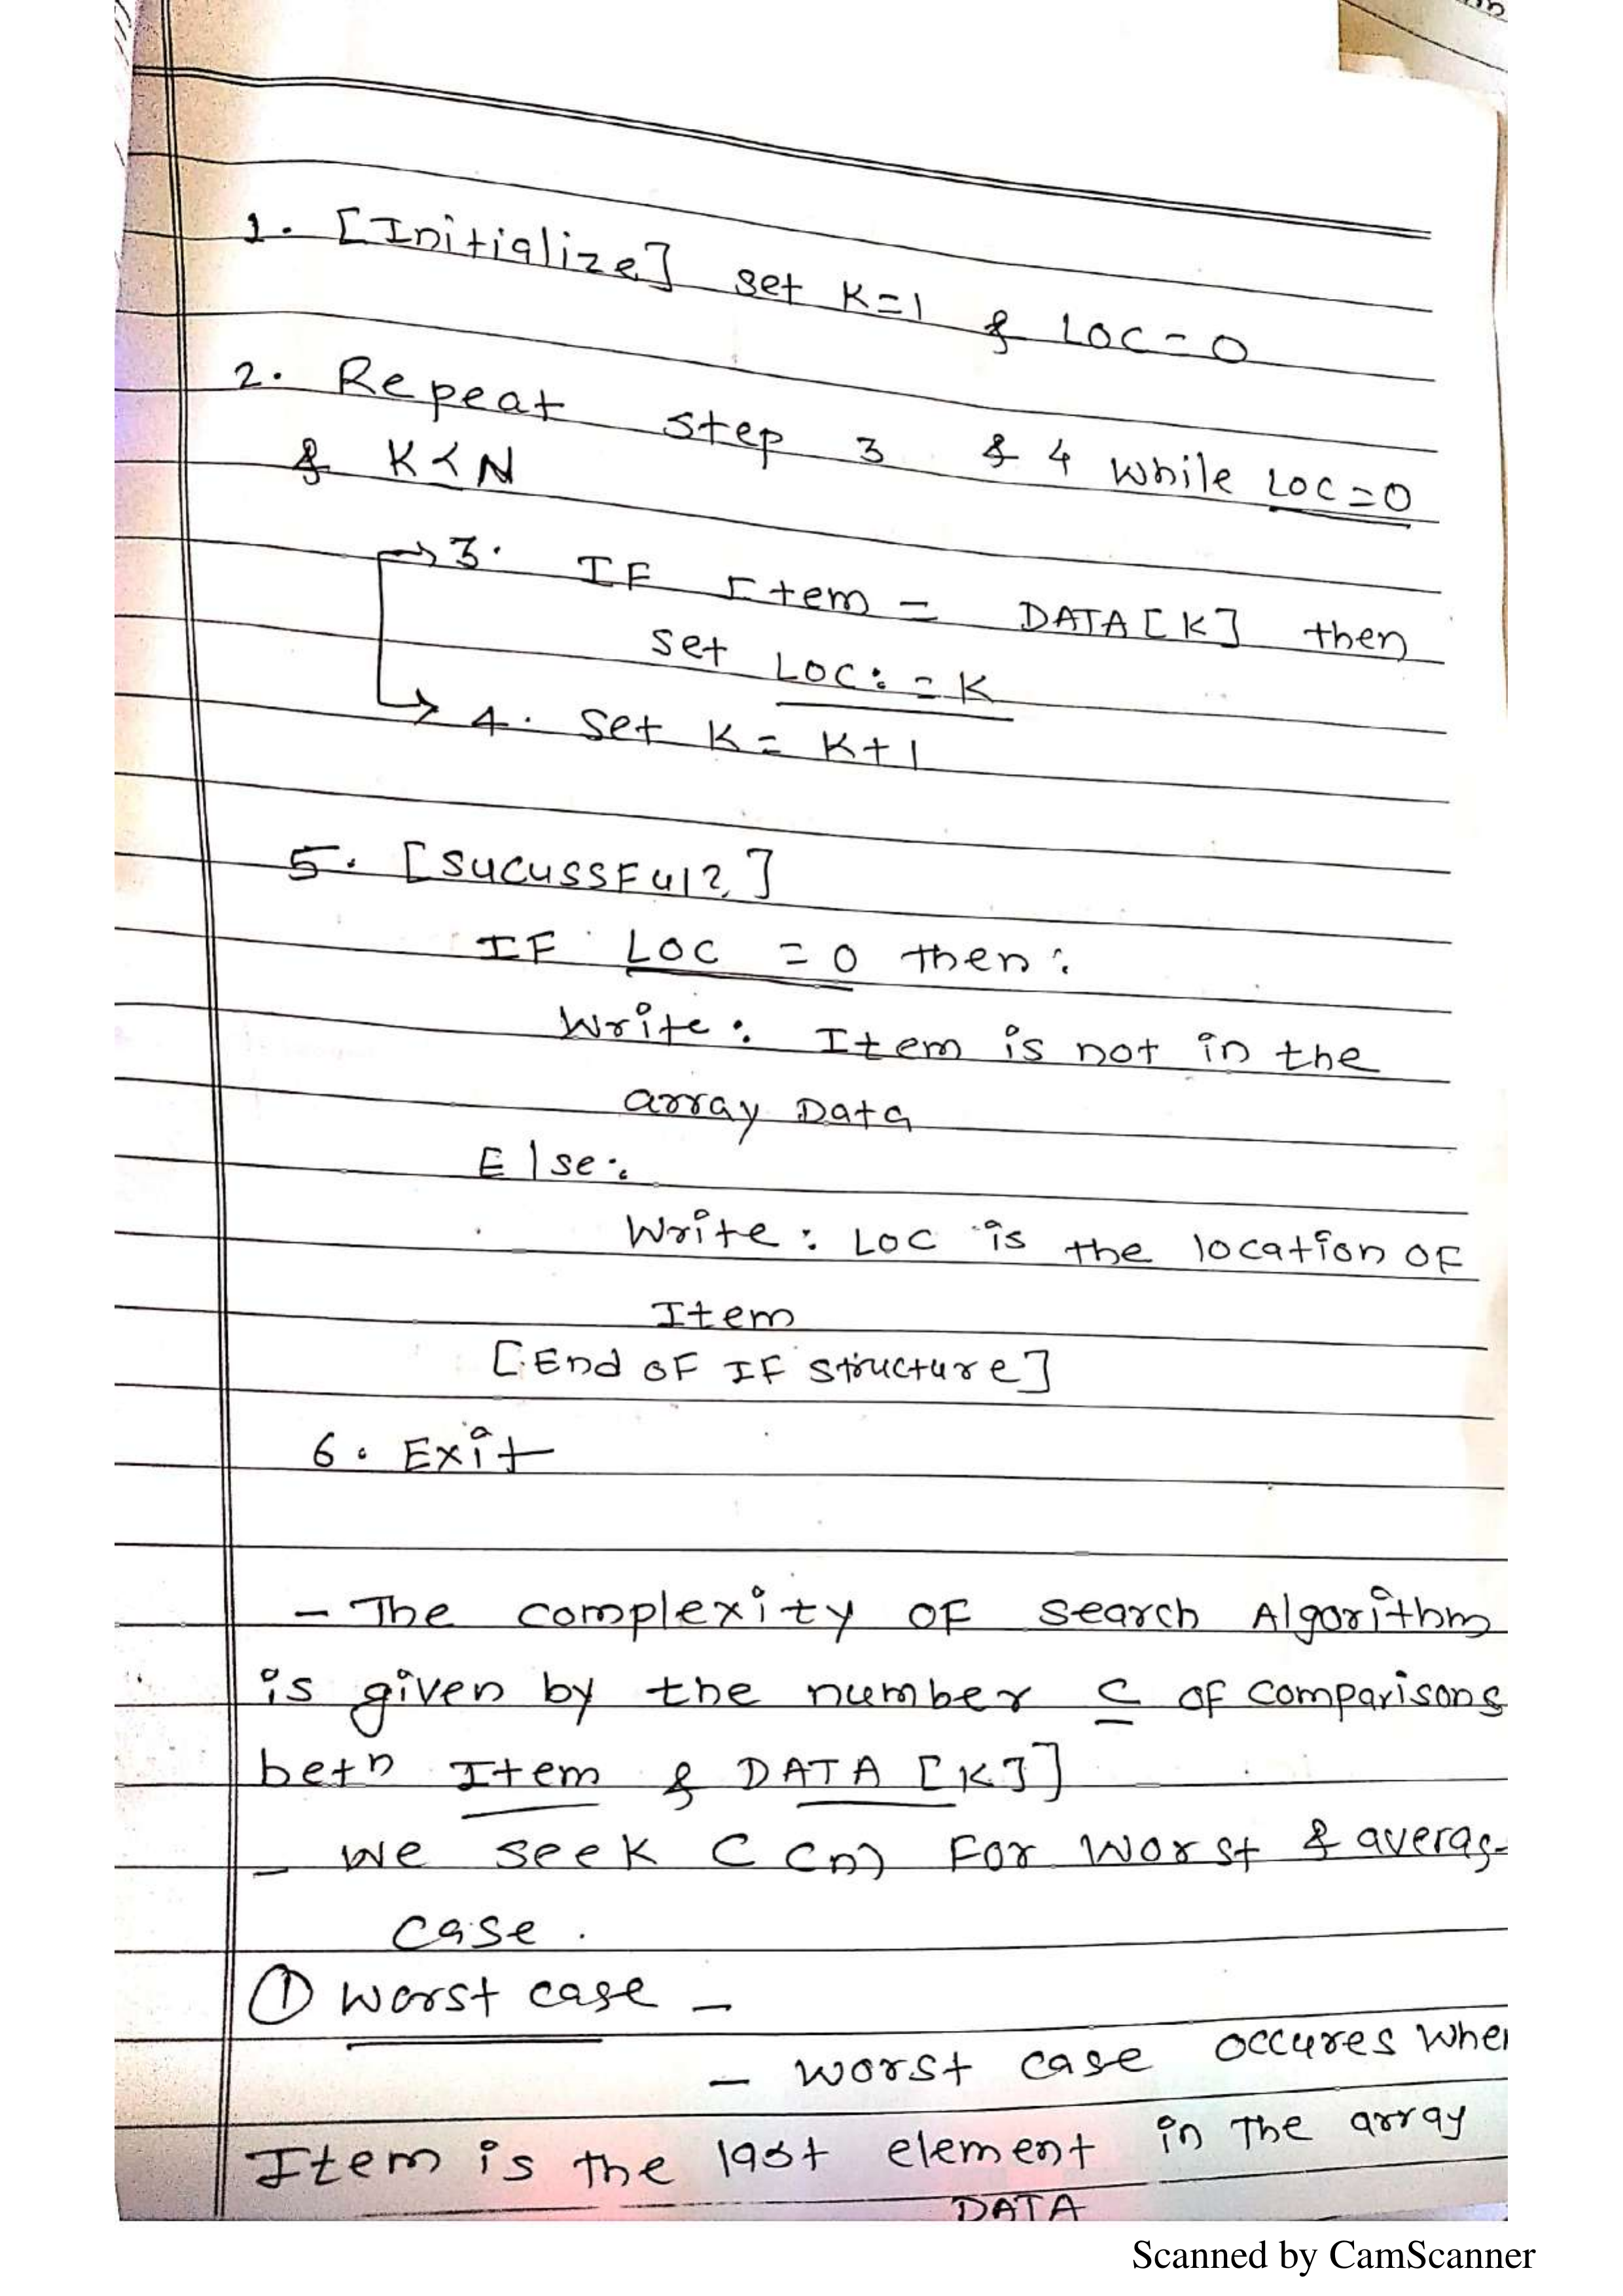 1. [Initialize] set K=1 & LOC=0
2. Repeat step 3 & 4 while LOC=0
& K<N
→3. IF Item = DATA[K] then
set LOC:=K
→ 4. set K= K+1
5. [SUCUSSFUl?]
IF LOC =0 then:
Write: Item is not in the
array Data
Else:
Write: LOC is the location OF
Item
[End OF IF structure]
6. Exit
- The complexity OF search Algorithm
is given by the number C OF comparisons
betn Item & DATA [K]]
- we seek C (n) For Worst & averag
case.
① worst case -
- worst case occures when
Item is the last element in The array
DATA
Scanned by CamScanner